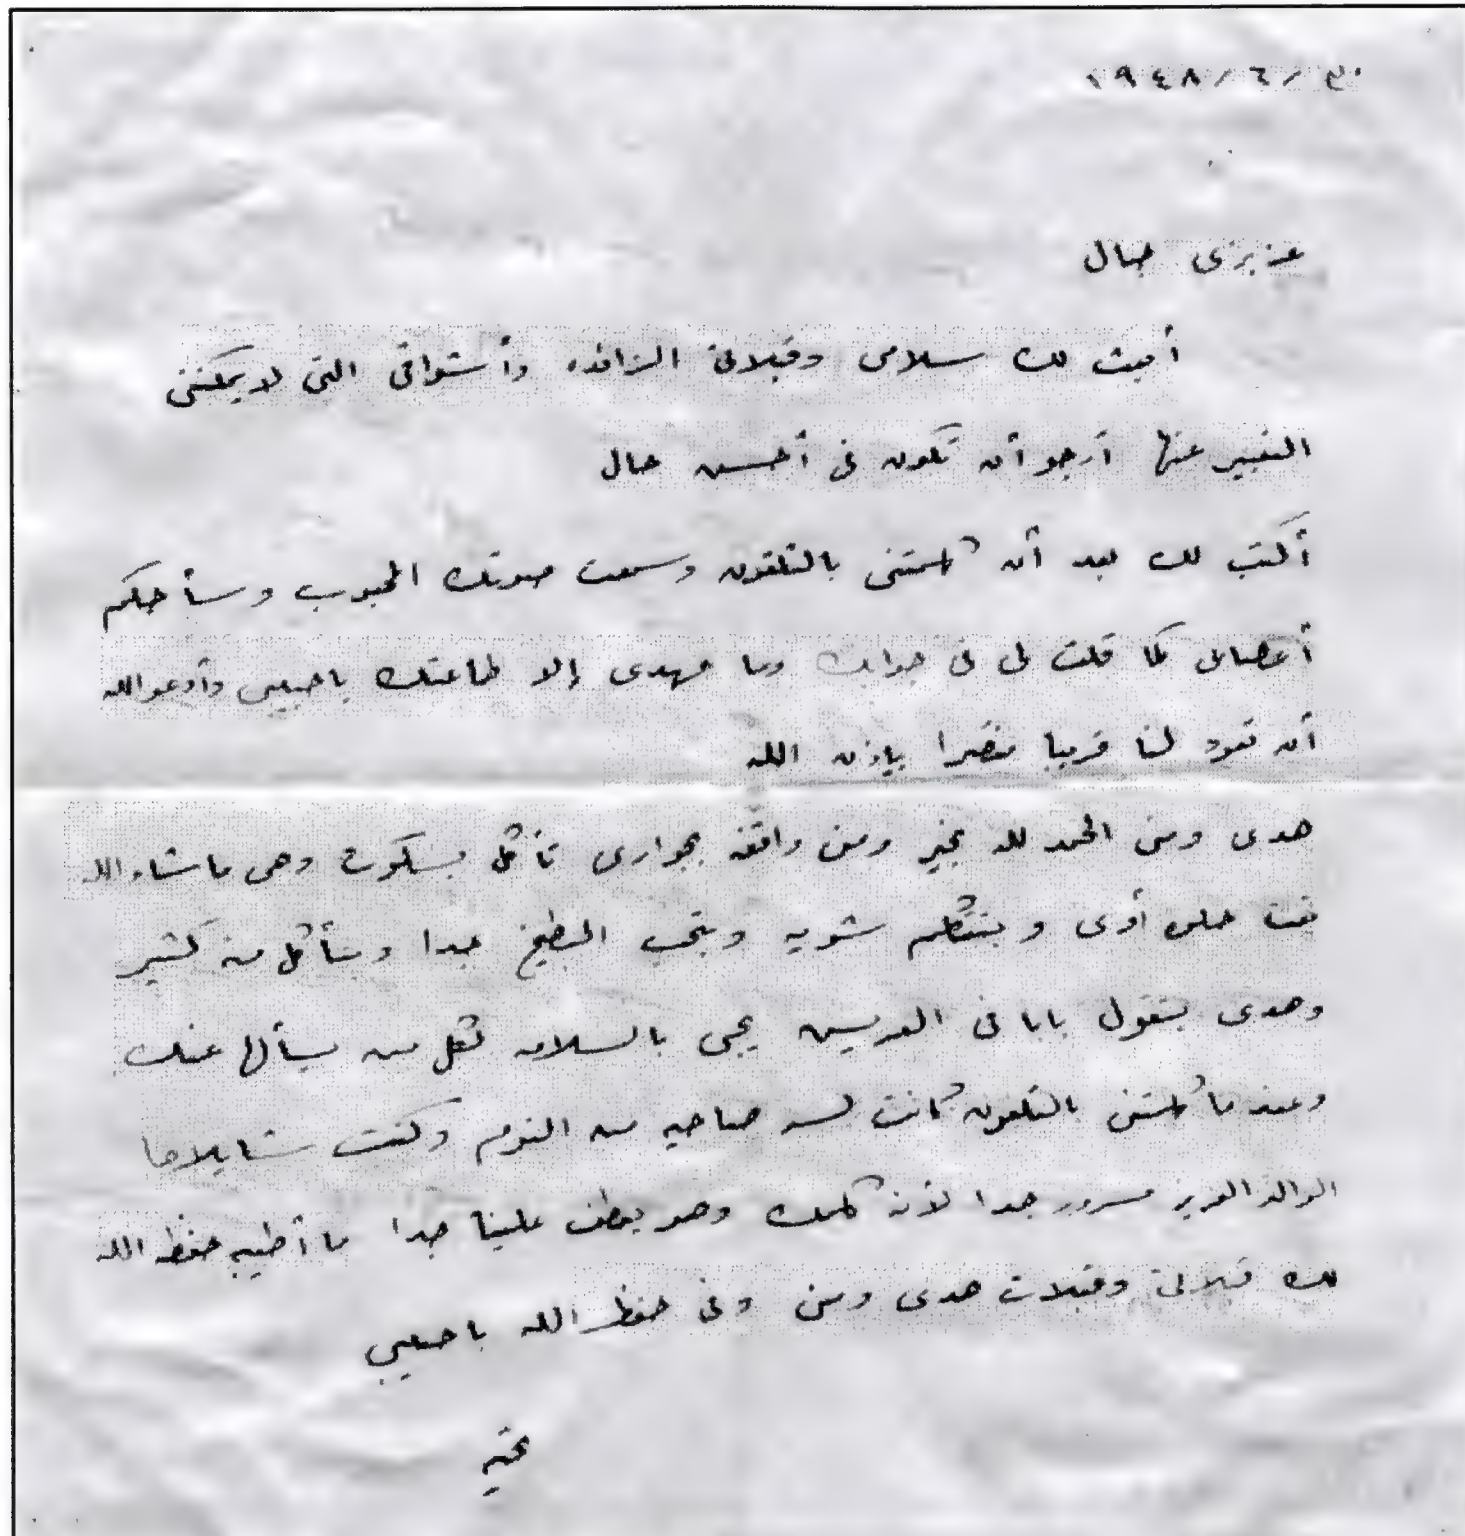 ٣٠/٦/١٩٤٨
عزيزى جمال
أبعث لك سلامى وقبلاتى الزائده وأشواقى التى لا يمكننى
التعبير عنها أرجو أن تكون فى أحسن حال
أكتب لك بعد أن كلمتنى بالتلفون وسمعت صوتك المحبوب وسأحكم
أعصابى كما قلت لى فى جوابك وما مهدى إلا طاعتك يا حبيبى وأدعو الله
أن تعود لنا قريبا منصرا بإذن الله
هدى ومنى الحمد لله بخير ومنى واقفه بجوارى تأكل بسكوت وهى ما شاء الله
بقت حلوه أوى وبتتكلم شويه وبتحب البطيخ جدا وبتأكل منه كتير
وهدى بتقول بابا فى العريش يجى بالسلامه لكل من يسألها عنك
وعندما كلمتنى بالتلفون كانت لسه صاحيه من النوم وكنت شايلاها
الوالد العزيز مسرور جدا لأنه كلمك وهو يعطف علينا جدا ما أطيبه حفظه الله
لك قبلاتى وقبلات هدى ومنى وفى حفظ الله يا حبيبى
تحيه